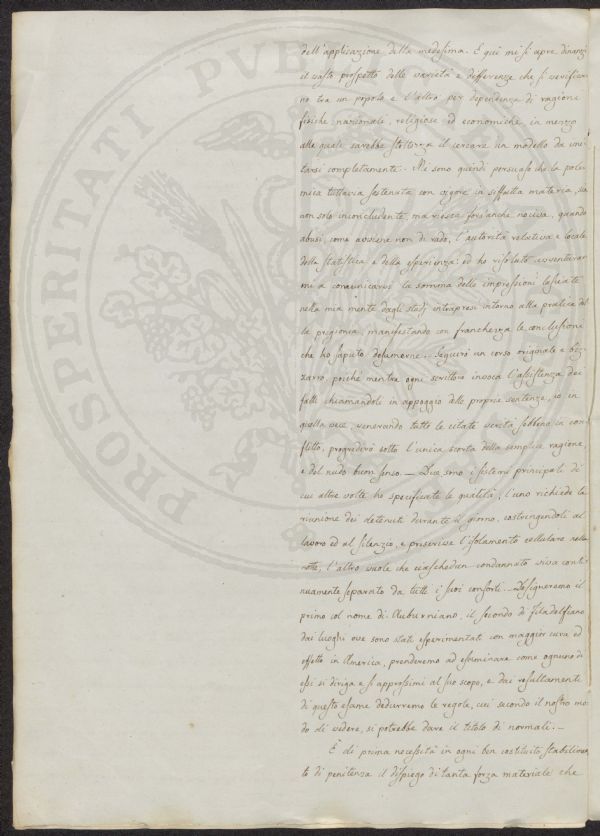 dell'applicazione della medesima. E qui mi si apre dinanzi
il vasto prospetto delle varietà e differenze che si verifica-
no tra un popolo e l'altro per dependenza di ragioni
fisiche nazionali, religiose ed economiche in mezzo
alle quali sarebbe stoltezza il cercare un modello da imi-
tarsi completamente. Mi sono quindi persuaso che la pole-
mica tuttavia sostenuta con vigore in siffatta materia, sia
non solo inconcludente, ma riesca fors'anche nociva, quando
abusi, come avviene non di rado, l'autorità relativa e locale
della statistica e della esperienza: ed ho risoluto avventurar-
mi a comunicarvi la somma delle impressioni lasciate
nella mia mente dagli studj intrapresi intorno alla pratica del
la prigionia, manifestando con franchezza le conclusioni
che ho saputo desumerne. Seguirò un corso originale e biz-
zarro, poiché mentre ogni scrittore invoca l'assistenza dei
fatti chiamandoli in appoggio delle proprie sentenze, io in
quella vece, venerando tutte le citate verità sebbene in con-
flitto, progredirò sotto l'unica scorta della semplice ragione,
e del nudo buon senso. — Due sono i sistemi principali di
cui altre volte ho specificate le qualità, l'uno richiede la
riunione dei detenuti durante il giorno, costringendoli al
lavoro ed al silenzio, e prescrive l'isolamento cellulare nella
notte, l'altro vuole che ciaschedun condannato viva conti-
nuamente separato da tutti i suoi consorti. Designeremo il
primo col nome di Auburniano, il secondo di Filadelfiano
dai luoghi ove sono stati esperimentati con maggior cura ed
effetto in America, prenderemo ad esaminare come ognuno di
essi si diriga e si approssimi al suo scopo, e dai resultamenti
di questo esame dedurremo le regole, cui secondo il nostro mo-
do di vedere, si potrebbe dare il titolo di normali. —
È di prima necessità in ogni ben costituito stabilimen-
to di penitenza il dispiego di tanta forza materiale che
PROSPERITATI PUBLICAE